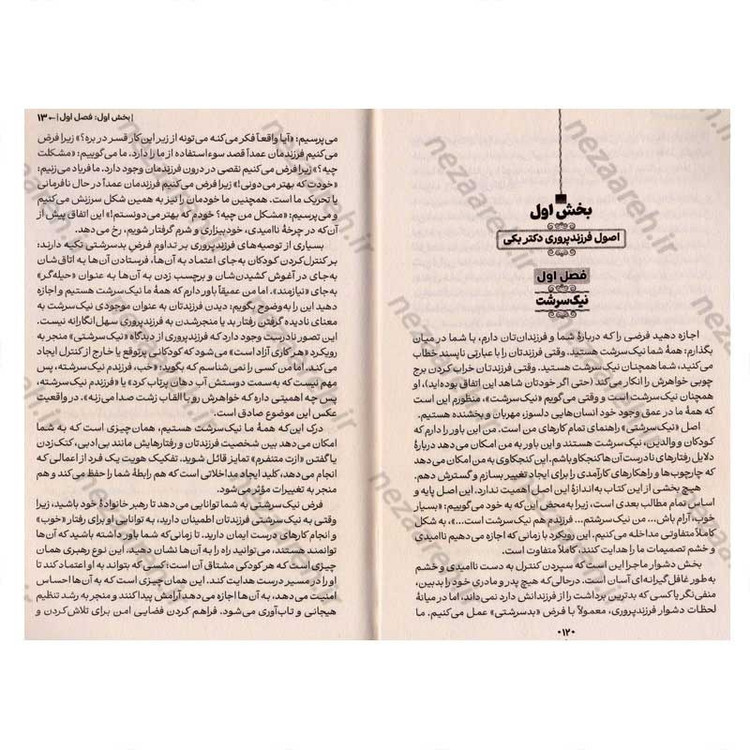 بخش اول
اصول فرزندپروری دکتر بکی
فصل اول
نیک‌سرشت
اجازه دهید فرضی را که دربارهٔ شما و فرزندان‌تان دارم، با شما در میان
بگذارم: همهٔ شما نیک‌سرشت هستید. وقتی فرزندتان را با عبارتی ناپسند خطاب
می‌کنید، شما همچنان نیک‌سرشت هستید. وقتی فرزندتان خراب کردن برج
چوبی خواهرش را انکار می‌کند (حتی اگر خودتان شاهد این اتفاق بوده‌اید)، او
همچنان نیک‌سرشت است و وقتی می‌گویم «نیک‌سرشت»، منظورم این است
که همهٔ ما در عمق وجود خود انسان‌هایی دلسوز، مهربان و بخشنده هستیم.
اصل «نیک‌سرشتی» راهنمای تمام کارهای من است. من این باور را دارم که
کودکان و والدین، نیک‌سرشت هستند و این باور به من امکان می‌دهد دربارهٔ
دلایل رفتارهای نادرست آن‌ها کنجکاو باشم. این کنجکاوی به من امکان می‌دهد
که چارچوب‌ها و راهکارهای کارآمدی را برای ایجاد تغییر بسازم و گسترش دهم.
هیچ بخشی از این کتاب به‌اندازهٔ این اصل اهمیت ندارد. این اصل پایه و
اساس تمام مطالب بعدی است، زیرا به‌محض این که به خود می‌گوییم: «بسیار
خوب، آرام باش... من نیک‌سرشتم... فرزندم هم نیک‌سرشت است...»، به شکل
کاملاً متفاوتی مداخله می‌کنیم. این رویکرد با زمانی که اجازه می‌دهیم ناامیدی
و خشم تصمیمات ما را هدایت کنند، کاملاً متفاوت است.
بخش دشوار ماجرا این است که سپردن کنترل به دست ناامیدی و خشم
به‌طور غافل‌گیرانه‌ای آسان است. درحالی‌که هیچ پدر و مادری خود را بدبین،
منفی‌نگر یا کسی که بدترین برداشت را از فرزندانش دارد نمی‌داند، اما در میانهٔ
لحظات دشوار فرزندپروری، معمولاً با فرض «بدسرشتی» عمل می‌کنیم. ما
۱۲
| بخش اول: فصل اول | ۱۳
می‌پرسیم: «آیا واقعاً فکر می‌کنه می‌تونه از زیر این کار قسر در بره؟» زیرا فرض
می‌کنیم فرزندمان عمداً قصد سوءاستفاده از ما را دارد. ما می‌گوییم: «مشکلت
چیه؟» زیرا فرض می‌کنیم نقصی در درون فرزندمان وجود دارد. ما فریاد می‌زنیم:
«خودت که بهتر می‌دونی!» زیرا فرض می‌کنیم فرزندمان عمداً در حال نافرمانی
یا تحریک ما است. همچنین ما خودمان را نیز به همین شکل سرزنش می‌کنیم
و می‌پرسیم: «مشکل من چیه؟ خودم که بهتر می‌دونستم!» این اتفاق پیش از
آن‌که در چرخهٔ ناامیدی، خودبیزاری و شرم گرفتار شویم، رخ می‌دهد.
بسیاری از توصیه‌های فرزندپروری بر تداوم فرض بدسرشتی تکیه دارند:
بر کنترل کردن کودکان به‌جای اعتماد به آن‌ها، فرستادن آن‌ها به اتاق‌شان
به‌جای در آغوش کشیدن‌شان و برچسب زدن به آن‌ها به عنوان «حیله‌گر»
به‌جای «نیازمند». اما من عمیقاً باور دارم که همهٔ ما نیک‌سرشت هستیم و اجازه
دهید این را به‌وضوح بگویم: دیدن فرزندتان به عنوان موجودی نیک‌سرشت به
معنای نادیده گرفتن رفتار بد یا منجر شدن به فرزندپروری سهل‌انگارانه نیست.
این تصور نادرست وجود دارد که فرزندپروری از دیدگاه «نیک‌سرشتی» منجر به
رویکرد «هر کاری آزاد است» می‌شود که کودکانی پرتوقع یا خارج از کنترل ایجاد
می‌کند. اما من کسی را نمی‌شناسم که بگوید: «خب، فرزندم نیک‌سرشته، پس
مهم نیست که به‌سمت دوستش آب دهان پرتاب کرد» یا «فرزندم نیک‌سرشته،
پس چه اهمیتی داره که خواهرش رو با القاب زشت صدا می‌زنه». در واقعیت
عکس این موضوع صادق است.
درک این‌که همهٔ ما نیک‌سرشت هستیم، همان چیزی است که به شما
امکان می‌دهد بین شخصیت فرزندتان و رفتارهایش مانند بی‌ادبی، کتک‌زدن
یا گفتن «ازت متنفرم» تمایز قائل شوید. تفکیک هویت یک فرد از اعمالی که
انجام می‌دهد، کلید ایجاد مداخلاتی است که هم رابطهٔ شما را حفظ می‌کند و هم
منجر به تغییرات مؤثر می‌شود.
فرض نیک‌سرشتی به شما توانایی می‌دهد تا رهبر خانوادهٔ خود باشید، زیرا
وقتی به نیک‌سرشتی فرزندتان اطمینان دارید، به توانایی او برای رفتار «خوب»
و انجام کارهای درست ایمان دارید. تا زمانی که شما باور داشته باشید که آن‌ها
توانمند هستند، می‌توانید راه را به آن‌ها نشان دهید. این نوع رهبری همان
چیزی است که هر کودکی مشتاق آن است؛ کسی که بتواند به او اعتماد کند تا
او را در مسیر درست هدایت کند. این همان چیزی است که به آن‌ها احساس
امنیت می‌دهد، به آن‌ها اجازه می‌دهد آرامش پیدا کنند و منجر به رشد تنظیم
هیجانی و تاب‌آوری می‌شود. فراهم کردن فضایی امن برای تلاش کردن و
nezaareh.ir